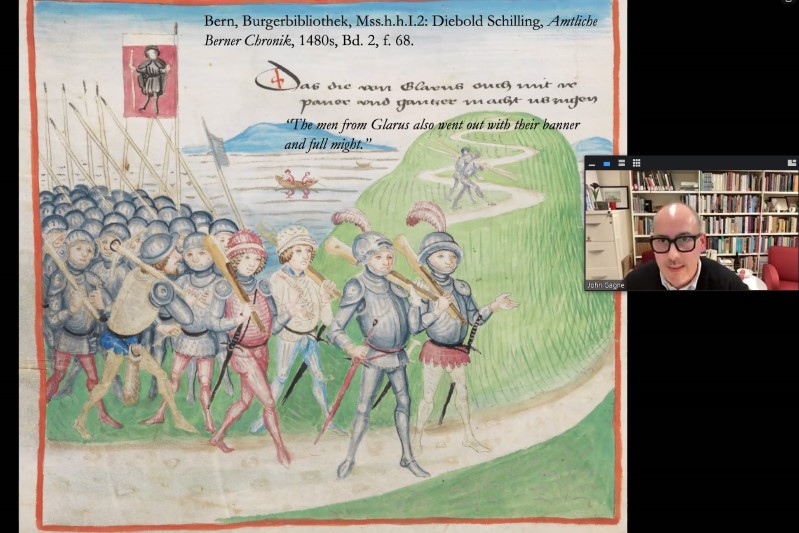 Bern, Burgerbibliothek, Mss.h.h.I.2: Diebold Schilling, Amtliche
Berner Chronik, 1480s, Bd. 2, f. 68.
Das die von Glarus ouch mit ir
paner und gantzer macht us zugen
"The men from Glarus also went out with their banner
and full might."
John Gagné